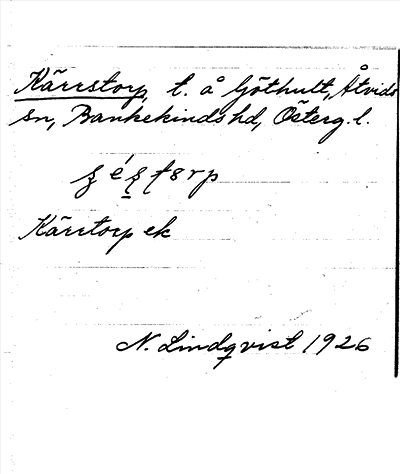 Kärrstorp, t. å Göthult, Åtvids
sn, Bankekinds hd, Österg. l.
Kärrtorp ek
N. Lindqvist 1926